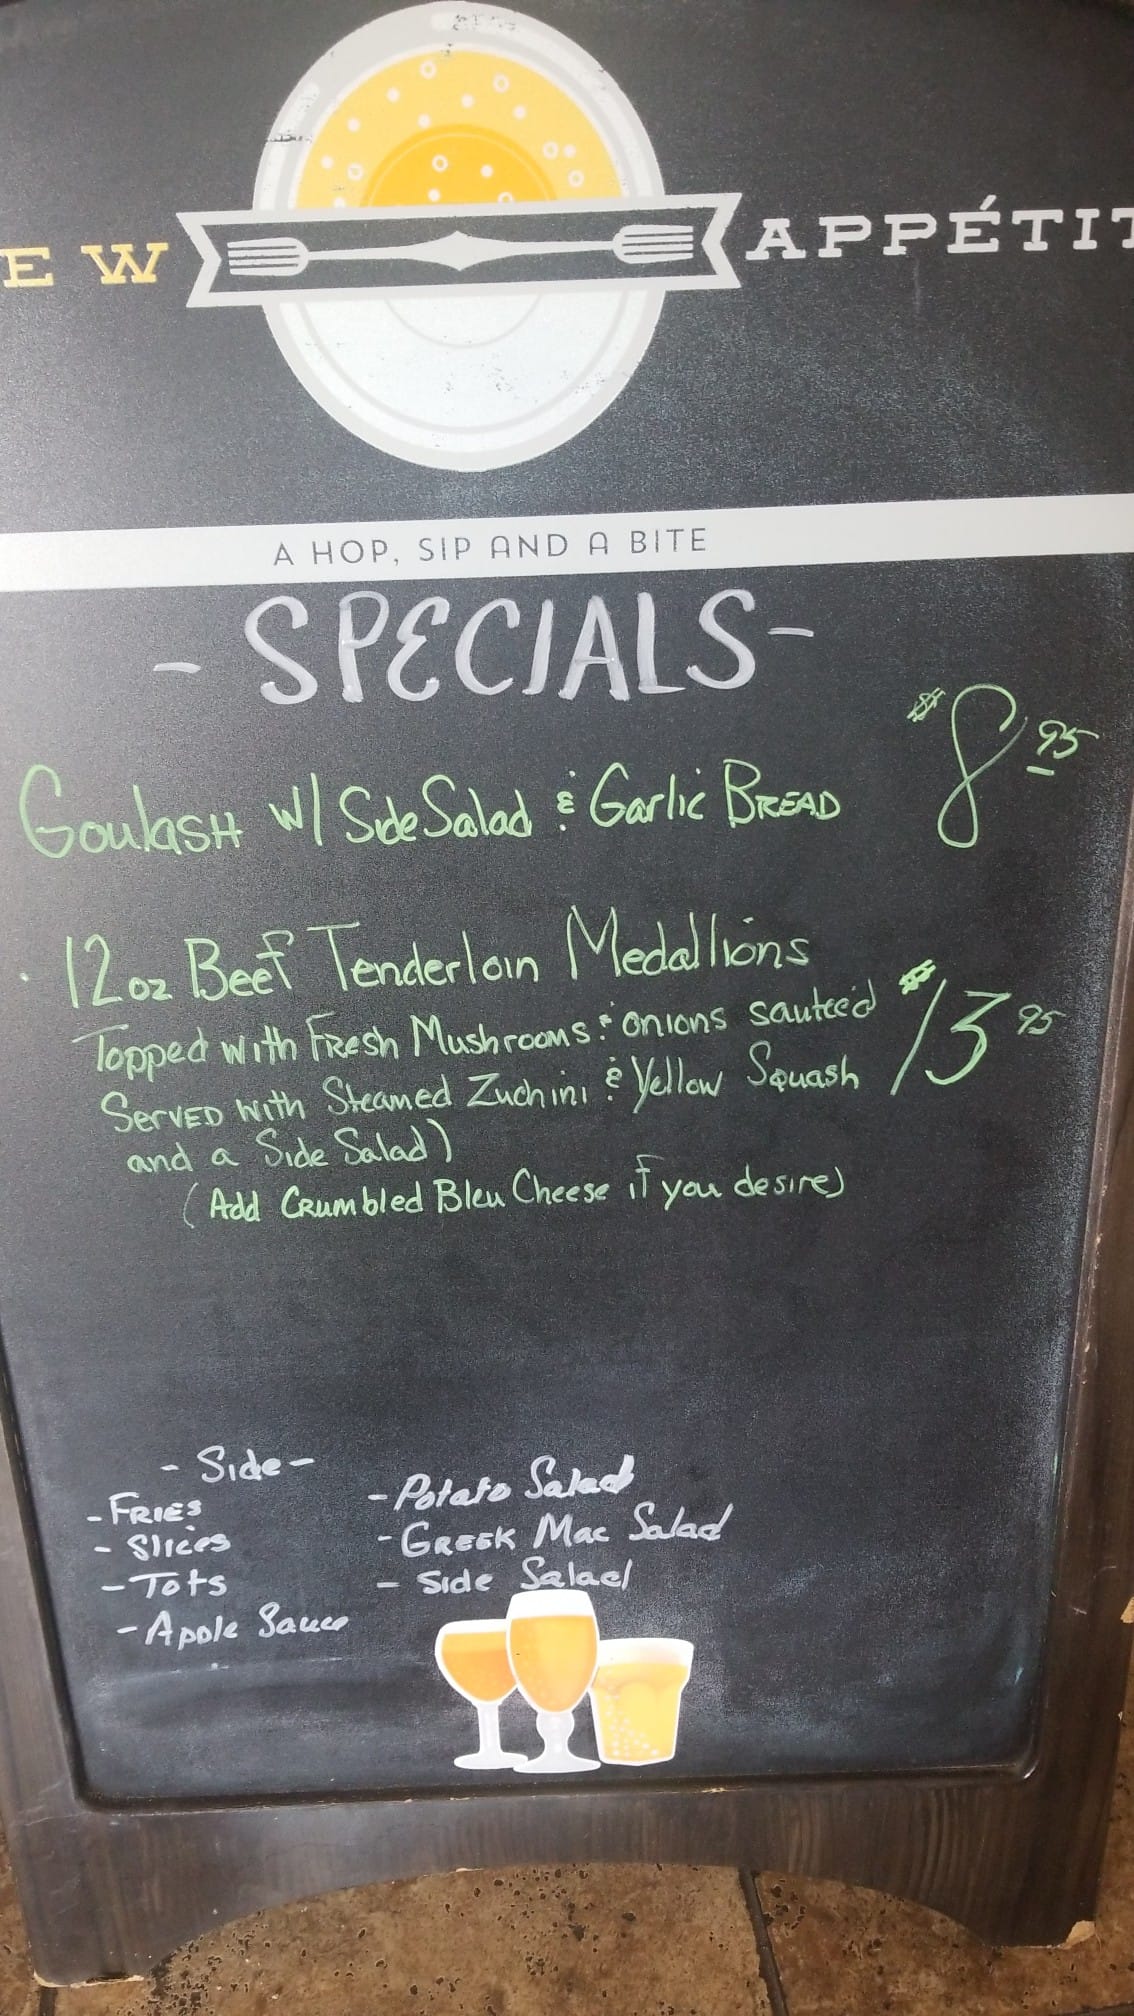 EW APPÉTIT
A HOP, SIP AND A BITE
- SPECIALS -
Goulash w/ Side Salad & Garlic Bread $8.95
· 12oz Beef Tenderloin Medallions
Topped with Fresh Mushrooms & onions sauteed $13 95
Served with Steamed Zuchini & Yellow Squash
and a Side Salad)
(Add Crumbled Bleu Cheese if you desire)
- Side -
- Fries
- Slices
- Tots
- Apple Sauce
- Potato Salad
- Greek Mac Salad
- Side Salad